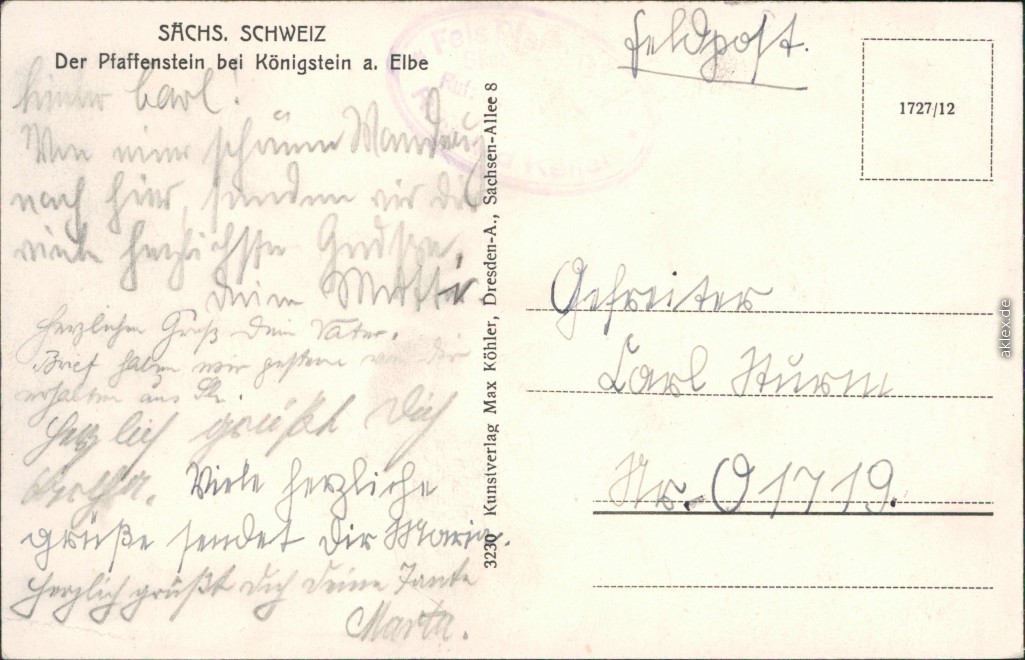 SÄCHS. SCHWEIZ
Der Pfaffenstein bei Königstein a. Elbe
Feldpost.
1727/12
Carl!
Von einer schönen
nach hier, senden wir dir
viele herzlichste
Deine
Herzlichen Gruß Dein Vater.
Brief haben wir gestern von dir
erhalten aus
Herzlich grüßt Dich
Viele herzliche
Grüße sendet Dir Maria.
Herzlich grüßt Dich Deine Tante
Marta.
3230 Kunstverlag Max Köhler, Dresden-A., Sachsen-Allee 8
Gefreiter
Carl Sturm
Nr. 01719.
aklex.de